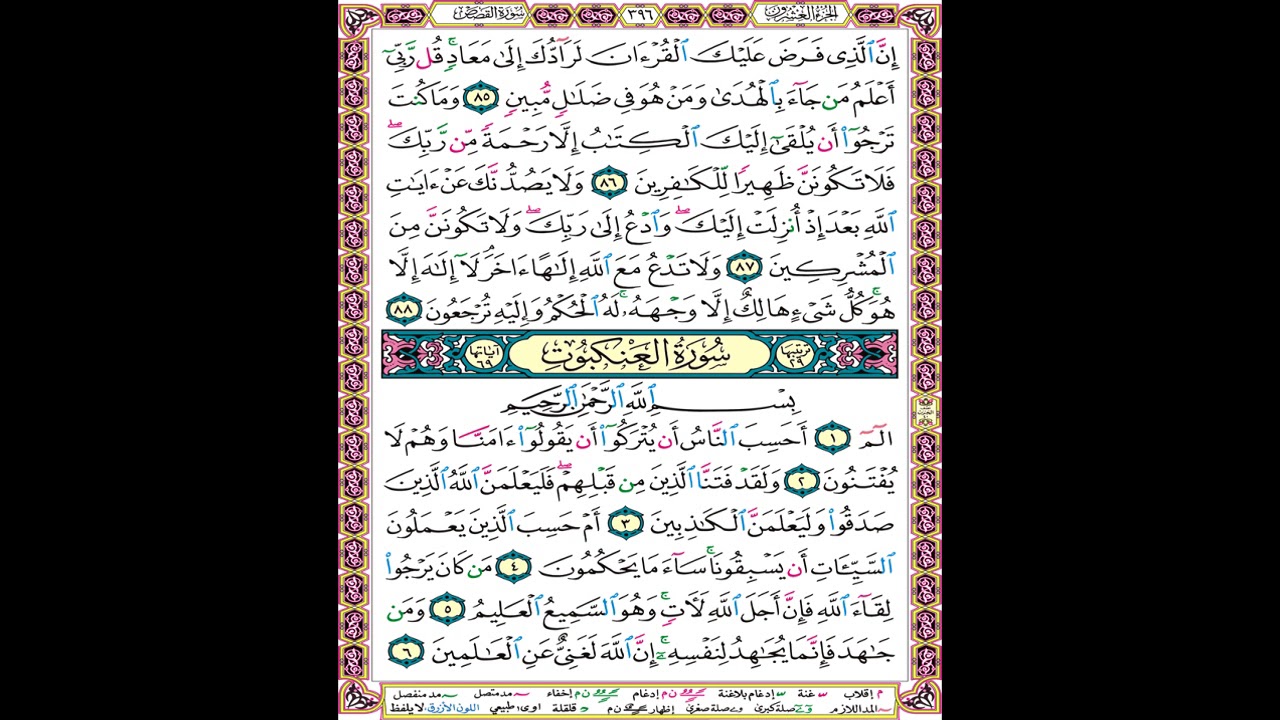 سورة القصص
٣٩٦
الجزء العشرون
إِنَّ ٱلَّذِى فَرَضَ عَلَيْكَ ٱلْقُرْءَانَ لَرَآدُّكَ إِلَىٰ مَعَادٍۢ ۚ قُل رَّبِّىٓ
أَعْلَمُ مَن جَآءَ بِٱلْهُدَىٰ وَمَنْ هُوَ فِى ضَلَٰلٍۢ مُّبِينٍۢ ٨٥ وَمَا كُنتَ
تَرْجُوٓا۟ أَن يُلْقَىٰٓ إِلَيْكَ ٱلْكِتَٰبُ إِلَّا رَحْمَةًۭ مِّن رَّبِّكَ ۖ
فَلَا تَكُونَنَّ ظَهِيرًۭا لِّلْكَٰفِرِينَ ٨٦ وَلَا يَصُدُّنَّكَ عَنْ ءَايَٰتِ
ٱللَّهِ بَعْدَ إِذْ أُنزِلَتْ إِلَيْكَ ۖ وَٱدْعُ إِلَىٰ رَبِّكَ ۖ وَلَا تَكُونَنَّ مِنَ
ٱلْمُشْرِكِينَ ٨٧ وَلَا تَدْعُ مَعَ ٱللَّهِ إِلَٰهًا ءَاخَرَ ۘ لَآ إِلَٰهَ إِلَّا
هُوَ ۚ كُلُّ شَىْءٍ هَالِكٌ إِلَّا وَجْهَهُۥ ۚ لَهُ ٱلْحُكْمُ وَإِلَيْهِ تُرْجَعُونَ ٨٨
ترتيبها ٢٩ سُورَةُ العَنكَبُوتِ آياتها ٦٩
بِسْمِ ٱللَّهِ ٱلرَّحْمَٰنِ ٱلرَّحِيمِ
الٓمٓ ١ أَحَسِبَ ٱلنَّاسُ أَن يُتْرَكُوٓا۟ أَن يَقُولُوٓا۟ ءَامَنَّا وَهُمْ لَا
يُفْتَنُونَ ٢ وَلَقَدْ فَتَنَّا ٱلَّذِينَ مِن قَبْلِهِمْ ۖ فَلَيَعْلَمَنَّ ٱللَّهُ ٱلَّذِينَ
صَدَقُوا۟ وَلَيَعْلَمَنَّ ٱلْكَٰذِبِينَ ٣ أَمْ حَسِبَ ٱلَّذِينَ يَعْمَلُونَ
ٱلسَّيِّـَٔاتِ أَن يَسْبِقُونَا ۚ سَآءَ مَا يَحْكُمُونَ ٤ مَن كَانَ يَرْجُوا۟
لِقَآءَ ٱللَّهِ فَإِنَّ أَجَلَ ٱللَّهِ لَءَاتٍۢ ۚ وَهُوَ ٱلسَّمِيعُ ٱلْعَلِيمُ ٥ وَمَن
جَٰهَدَ فَإِنَّمَا يُجَٰهِدُ لِنَفْسِهِۦٓ ۚ إِنَّ ٱللَّهَ لَغَنِىٌّ عَنِ ٱلْعَٰلَمِينَ ٦
م إقلاب غنة إدغام بلاغنة ن م إدغام ن م إخفاء مد متصل مد منفصل
المد اللازم صلة كبرى صلة صغرى إظهار ن م قلقلة اوى: طبيعي اللون الأزرق: لا يلفظ